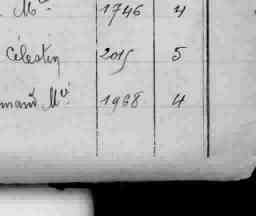 Mᵉ 1746 4
Célestin 2015 5
mand Mⁱˡ 1968 4